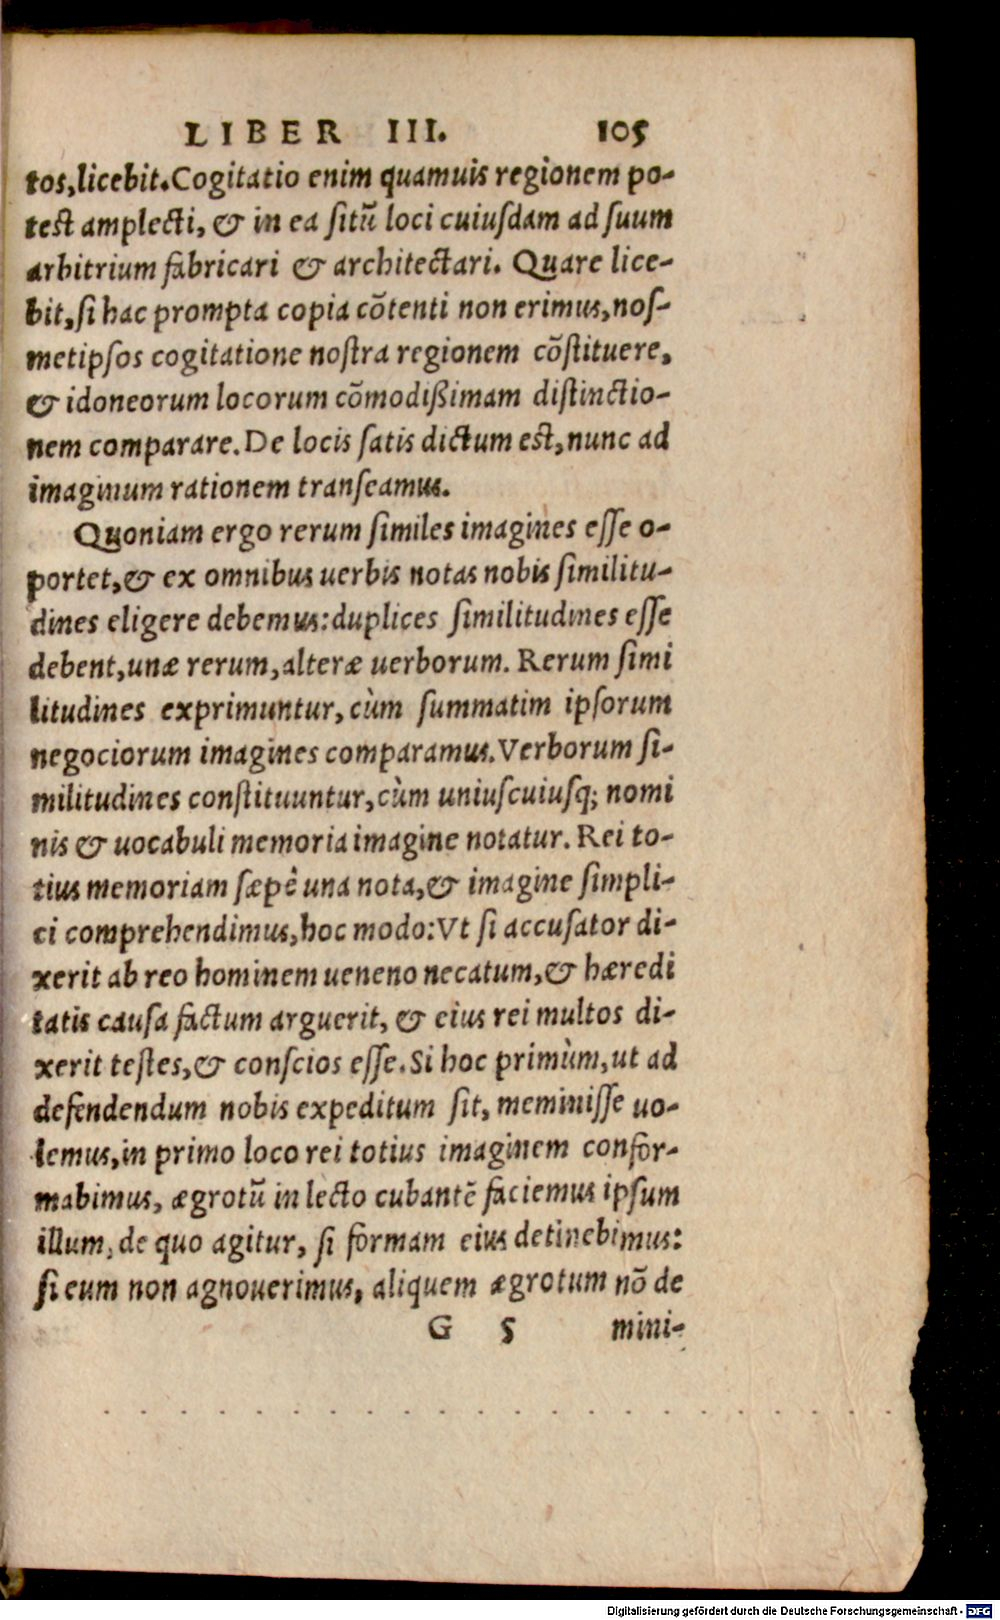 LIBER III. 105
tos,licebit.Cogitatio enim quamuis regionem po-
test amplecti, & in ea sitũ loci cuiusdam ad suum
arbitrium fabricari & architectari. Quare lice-
bit,si hac prompta copia cõtenti non erimus,nos-
metipsos cogitatione nostra regionem cõstituere,
& idoneorum locorum cõmodißimam distinctio-
nem comparare. De locis satis dictum est,nunc ad
imaginum rationem transeamus.
Quoniam ergo rerum similes imagines esse o-
portet,& ex omnibus uerbis notas nobis similitu-
dines eligere debemus:duplices similitudines esse
debent,unæ rerum,alteræ uerborum. Rerum simi
litudines exprimuntur, cùm summatim ipsorum
negociorum imagines comparamus.Verborum si-
militudines constituuntur,cùm uniuscuiusq; nomi
nis & uocabuli memoria imagine notatur. Rei to-
tius memoriam sæpè una nota,& imagine simpli-
ci comprehendimus,hoc modo:Vt si accusator di-
xerit ab reo hominem ueneno necatum,& hæredi
tatis causa factum arguerit, & eius rei multos di-
xerit testes,& conscios esse.Si hoc primùm,ut ad
defendendum nobis expeditum sit, meminisse uo-
lemus,in primo loco rei totius imaginem confor-
mabimus, ægrotũ in lecto cubantẽ faciemus ipsum
illum, de quo agitur, si formam eius detinebimus:
si eum non agnouerimus, aliquem ægrotum nõ de
G 5 mini-
Digitalisierung gefördert durch die Deutsche Forschungsgemeinschaft - DFG